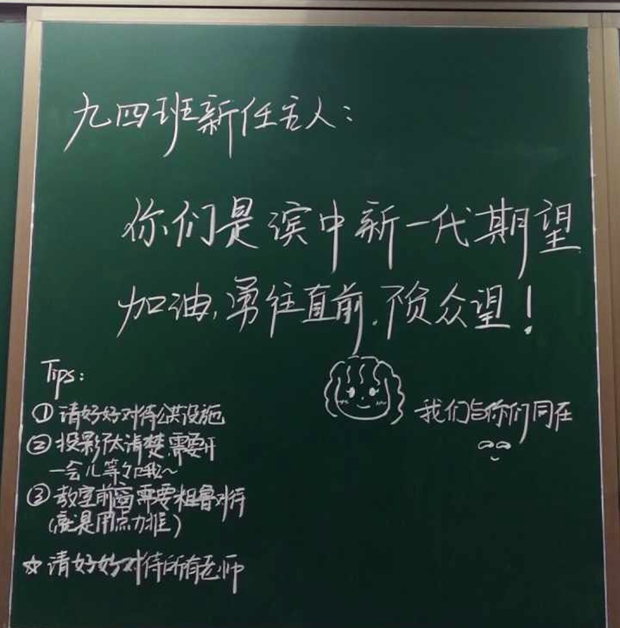 九四班新任主人：
你们是滨中新一代期望
加油，勇往直前，不负众望！
Tips:
① 请好好对待公共设施
② 投影不太清楚需要开
一会儿等一下哦~
③ 教室前窗需要粗鲁对待
(就是用点力推)
☆ 请好好对待所有老师
我们与你们同在